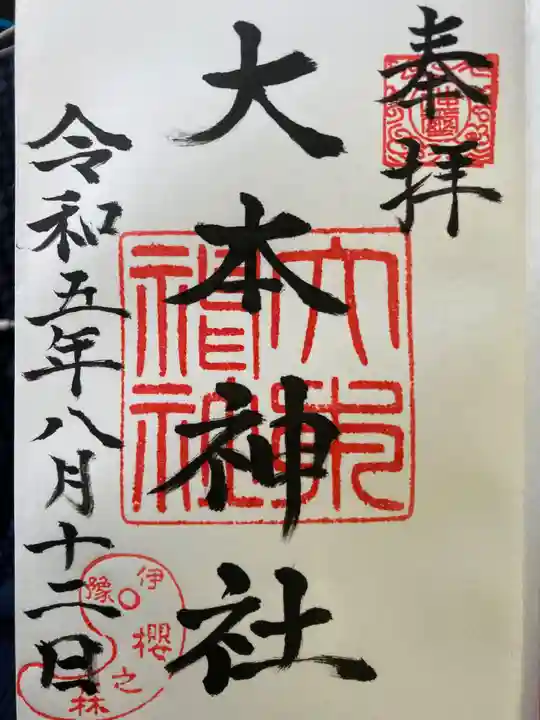 奉拝
大本神社
令和五年八月十二日
伊豫
櫻之林